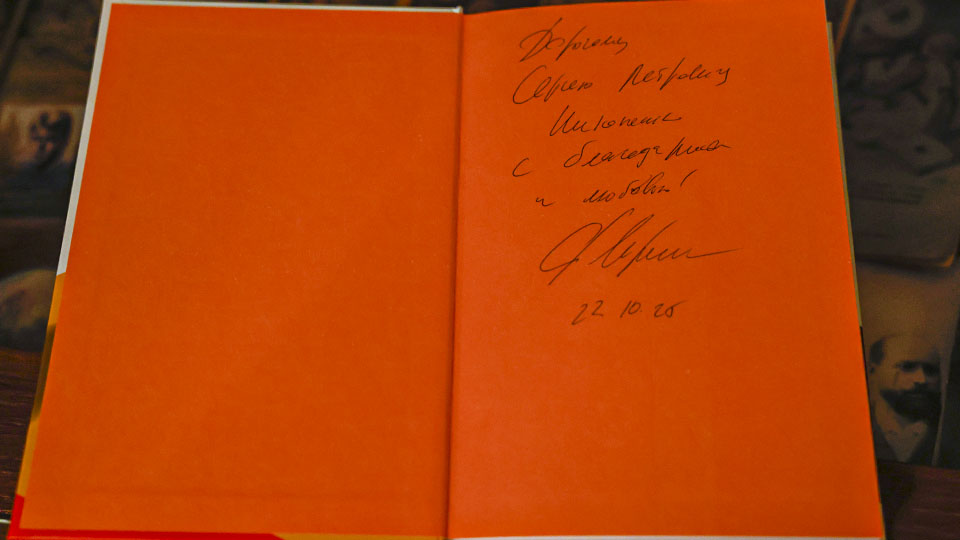 Дорогому
Сергею Петровичу
с благодарностью
и любовью!
22.10.25